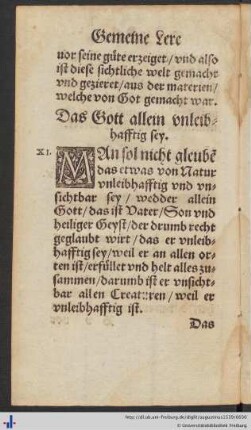 Gemeine Lere
uor seine güte erzeiget/vnd also
ist diese sichtliche welt gemacht
vnd gezieret/aus der materien/
welche von Got gemacht war.
Das Gott allein vnleib-
hafftig sey.
XI.
MAn sol nicht gleubē
das etwas von Natur
vnleibhafftig vnd vn-
sichtbar sey/wedder allein
Gott/das ist Vater/Son vnd
heiliger Geyst/der drumb recht
geglaubt wirt/das er vnleib-
hafftig sey/weil er an allen or-
ten ist/erfüllet vnd helt alles zu-
sammen/darumb ist er vnsicht-
bar allen Creaturen/weil er
vnleibhafftig ist.
Das
© Universitätsbibliothek Freiburg